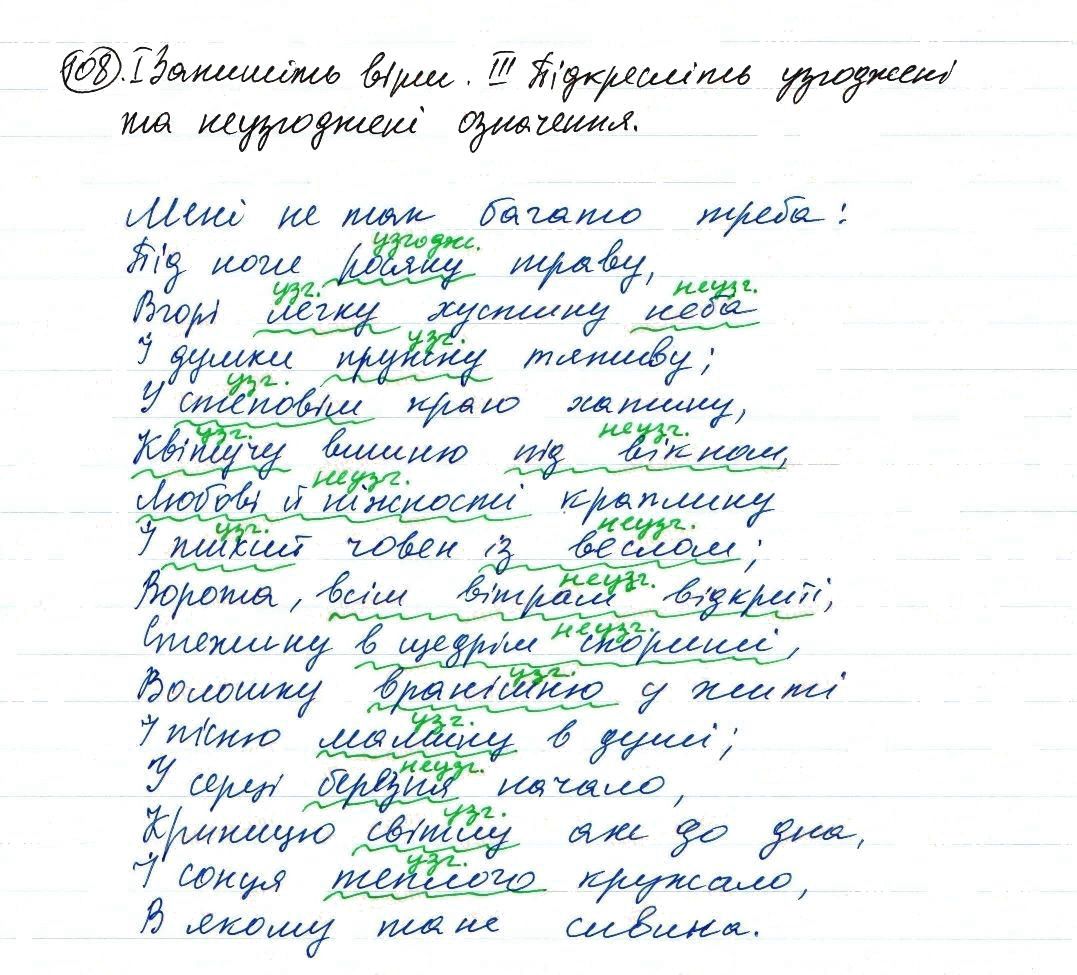 108. І Запишіть вірш. ІІІ Підкресліть узгоджені
та неузгоджені означення.
Мені не так багато треба:
узгодж.
Під ноги росяну траву,
узг. неузг.
Вгорі легку хустину неба
узг.
І думки пружну тятиву;
узг.
У степовім краю хатину,
узг. неузг.
Квітучу вишню під вікном,
неузг.
Любові й ніжності краплину
узг. неузг.
І тихий човен із веслом;
неузг.
Ворота, всім вітрам відкриті,
неузг.
Стежину в щедрім споришi,
узг.
Волошку вранішню у житі
узг.
І пісню мамину в душі;
неузг.
У серці березня начало,
узг.
Криницю світлу аж до дна,
узг.
І сонця теплого кружало,
В якому тане сивина.